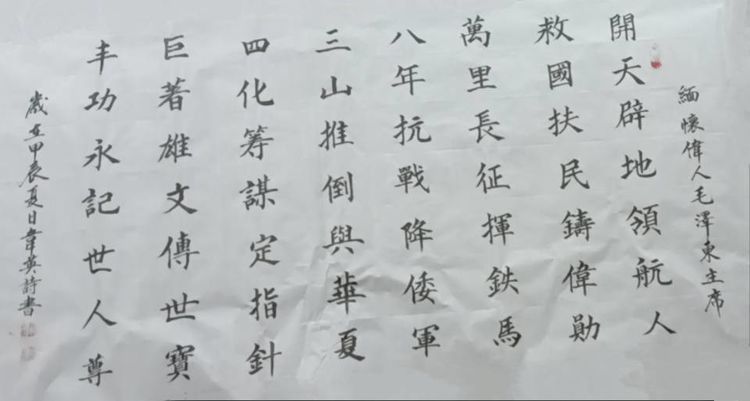 緬懷偉人毛澤東主席
開天辟地領航人
救國扶民鑄偉勛
萬里長征揮鉄馬
八年抗戰降倭軍
三山推倒與華夏
四化筹謀定指針
巨著雄文傳世寶
丰功永記世人尊
歲在甲辰夏日韋英詩書